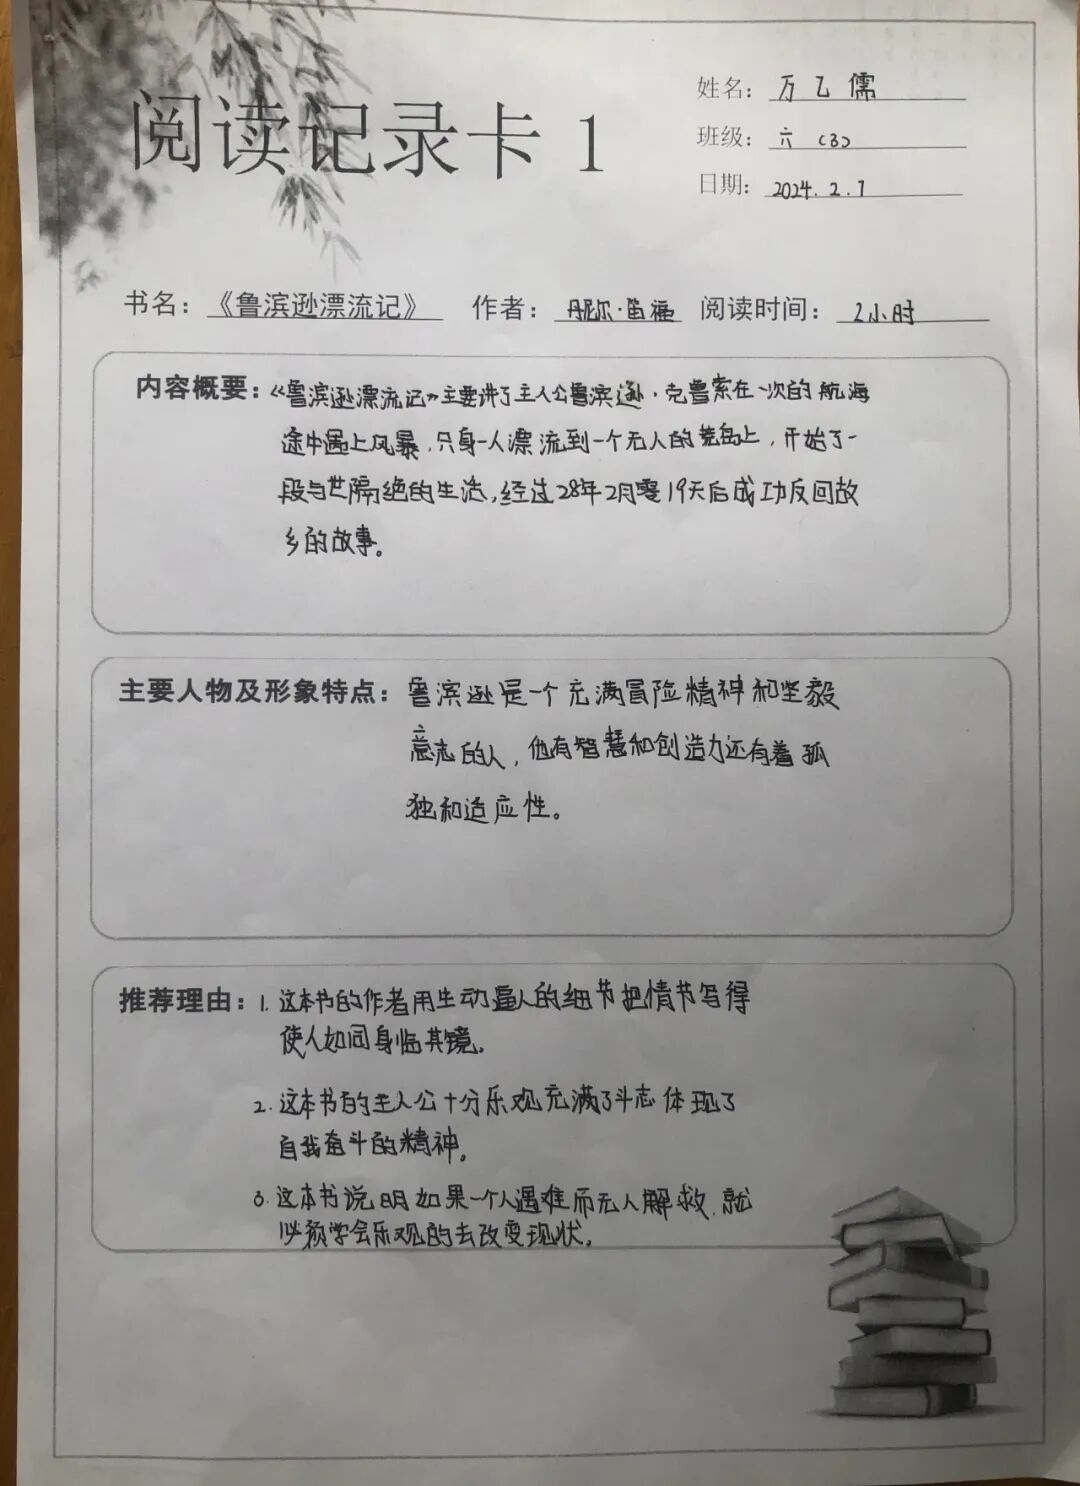 阅读记录卡 1
姓名：万乙儒
班级：六（3）
日期：2024.2.7
书名：《鲁滨逊漂流记》 作者：丹尼尔·笛福 阅读时间：2小时
内容概要：《鲁滨逊漂流记》主要讲了主人公鲁滨逊·克鲁索在一次的航海
途中遇上风暴，只身一人漂流到一个无人的荒岛上，开始了一
段与世隔绝的生活，经过28年2月零19天后成功反回故
乡的故事。
主要人物及形象特点：鲁滨逊是一个充满冒险精神和坚毅
意志的人，他有智慧和创造力还有着孤
独和适应性。
推荐理由：1.这本书的作者用生动逼人的细节把情节写得
使人如同身临其镜。
2.这本书的主人公十分乐观充满了斗志体现了
自我奋斗的精神。
3.这本书说明如果一个人遇难而无人解救，就
必须学会乐观的去改变现状。